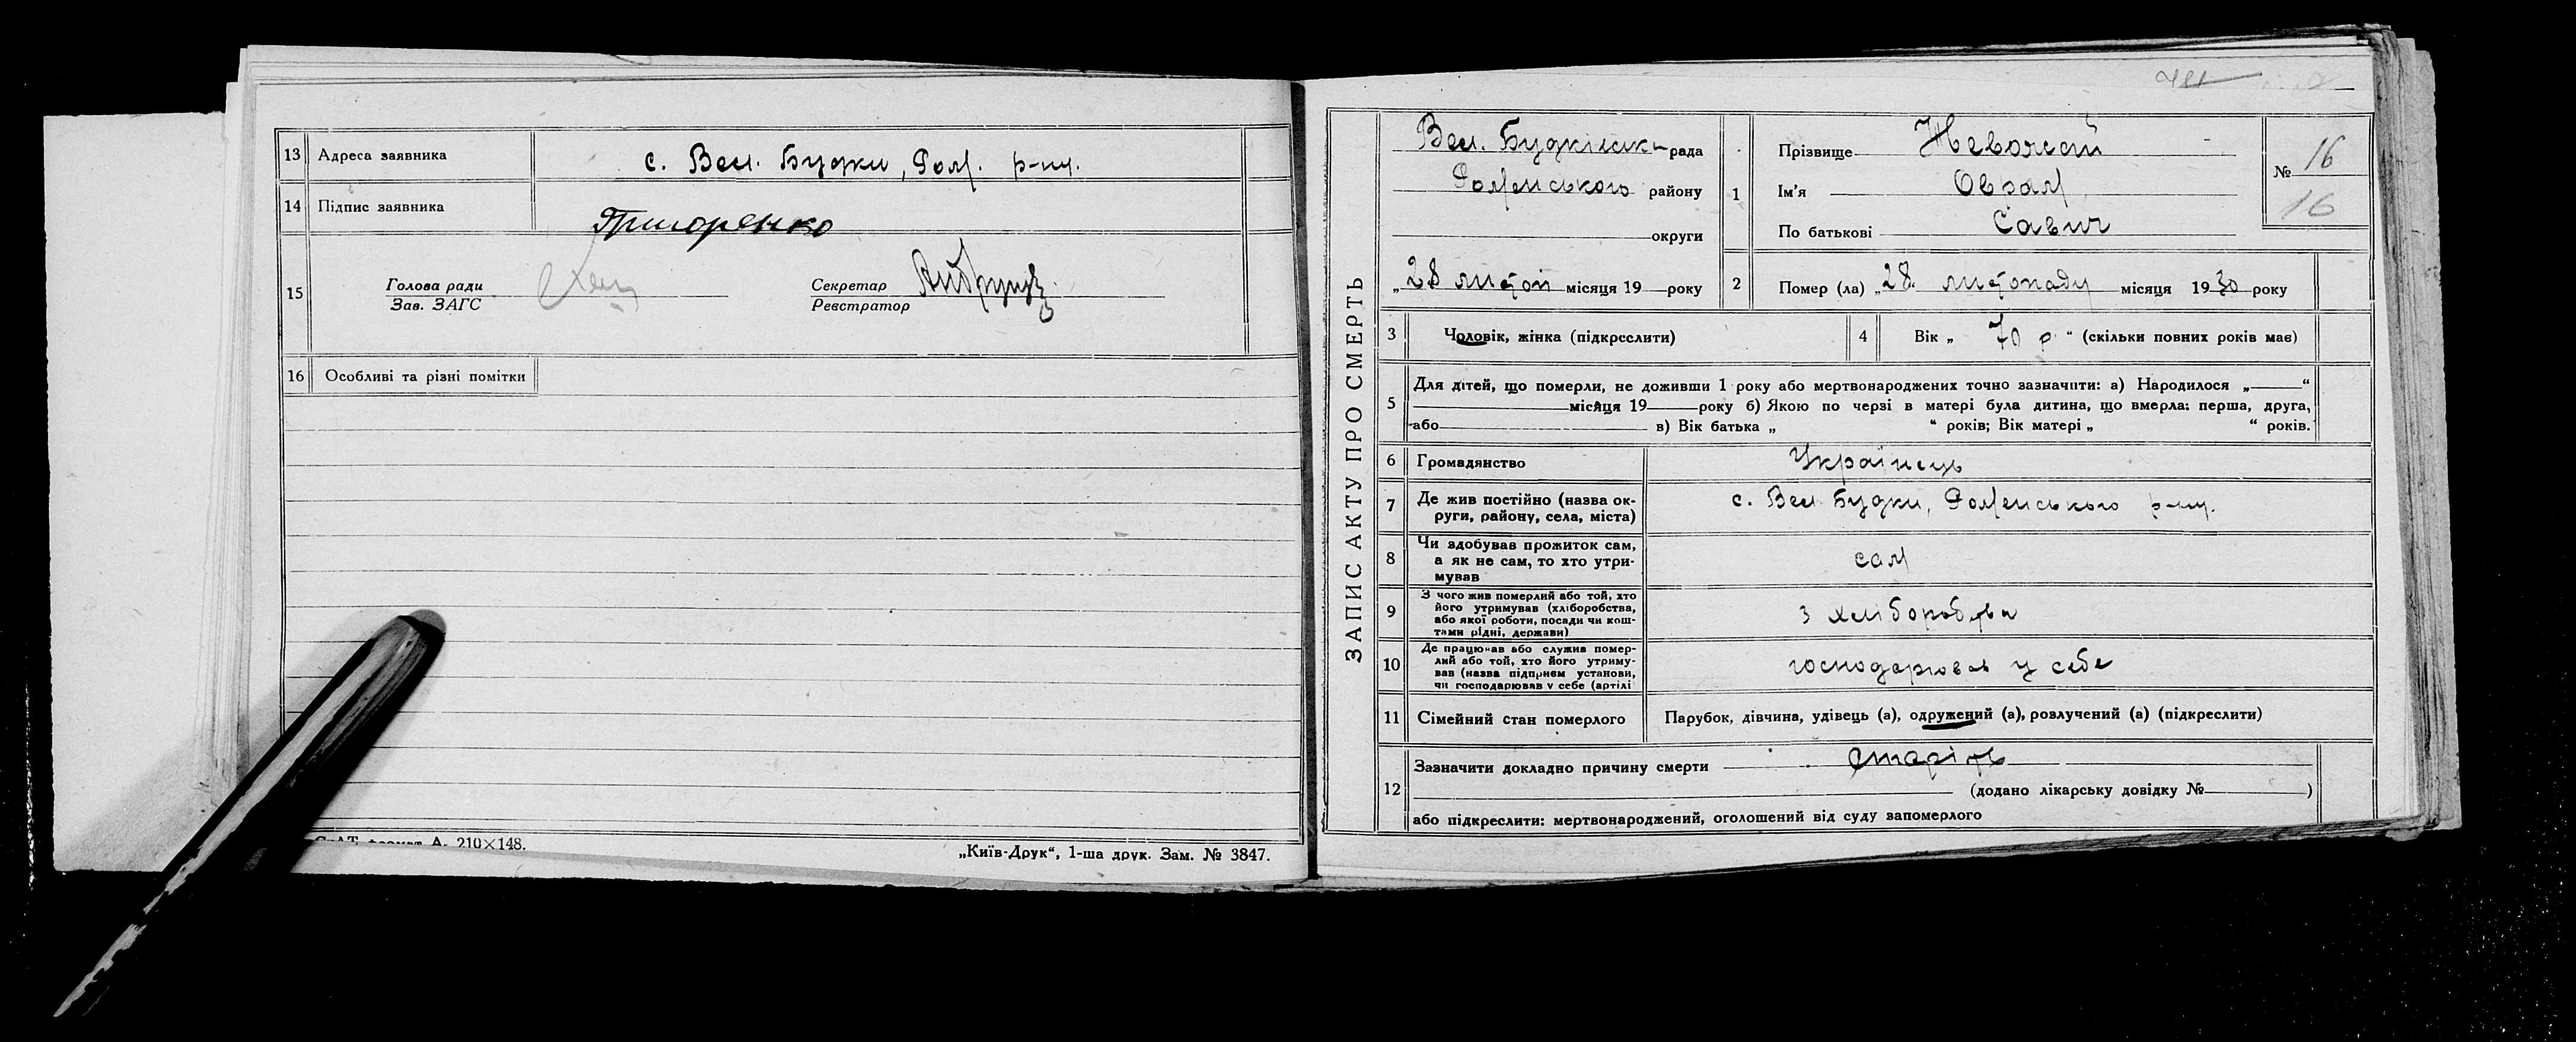 13 Адреса заявника с. Вел. Будки, Ром. р-ну.
14 Підпис заявника Григоренко
15 Голова ради Секретар
Зав. ЗАГС Реєстратор
16 Особливі та різні помітки
210×148.
„Київ-Друк“, 1-ша друк. Зам. № 3847.
ЗАПИС АКТУ ПРО СМЕРТЬ
Вел. Будківська рада
Роменського району
округи
„28 листоп місяця 19 року
1 Прізвище
Ім'я Оврам
По батькові Савич
№ 16
16
2 Помер (ла) „28. листопаду місяця 1930 року
3 Чоловік, жінка (підкреслити)
4 Вік „ 70 р. “ (скільки повних років має)
5 Для дітей, що померли, не доживши 1 року або мертвонароджених точно зазначити: а) Народилося „ “
місяця 19 року б) Якою по черзі в матері була дитина, що вмерла: перша, друга,
або в) Вік батька „ “ років; Вік матері „ “ років.
6 Громадянство Українець
7 Де жив постійно (назва ок-
руги, району, села, міста) с. Вел. Будки, Роменського р-ну.
8 Чи здобував прожиток сам,
а як не сам, то хто утри-
мував сам
9 З чого жив померлий або той, хто
його утримував (хліборобства,
або якої роботи, посади чи кош-
тами рідні, держави) з хліборобства
10 Де працював або служив помер-
лий або той, хто його утриму-
вав (назва підприєм установи,
чи господарював у себе (артілі господарював у себе
11 Сімейний стан померлого Парубок, дівчина, удівець (а), одружений (а), розлучений (а) (підкреслити)
12 Зазначити докладно причину смерти старість
(додано лікарську довідку № )
або підкреслити: мертвонароджений, оголошений від суду запомерлого